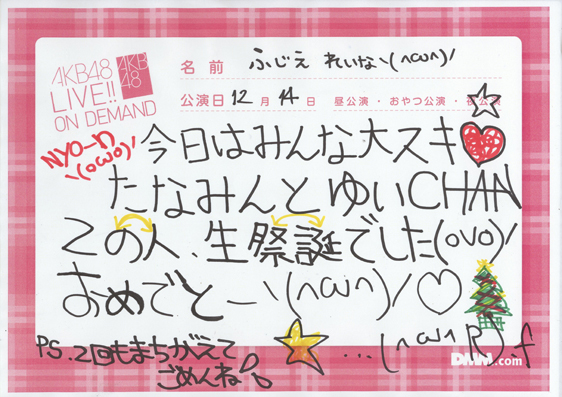 AKB48
LIVE!!
ON DEMAND
AKB
48
名前 ふじえ れいな ヽ(^ω^)/
公演日 12月14日 昼公演・おやつ公演・夜公演
NYO-n
ヽ(oωo)/
今日はみんな大スキ
たなみんとゆいCHAN
2の人、生祭誕でした(ovo)/
おめでとーヽ(^ω^)/♡
PS.2回もまちがえて
ごめんね!。
...(^ω^R).f
DMM.com